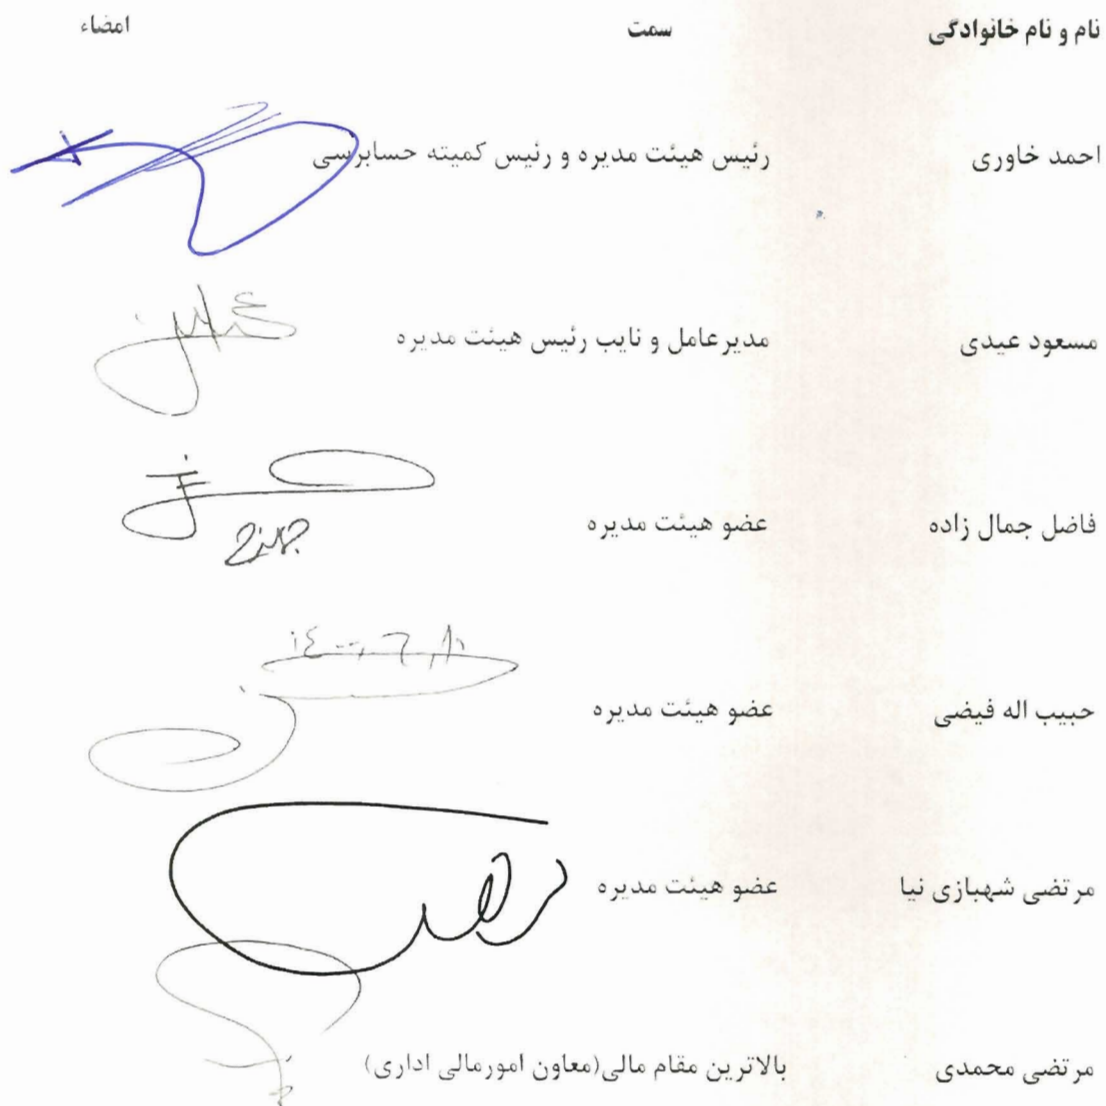 نام و نام خانوادگی سمت امضاء
احمد خاوری رئیس هیئت مدیره و رئیس کمیته حسابرسی
مسعود عیدی مدیرعامل و نایب رئیس هیئت مدیره
فاضل جمال زاده عضو هیئت مدیره
حبیب اله فیضی عضو هیئت مدیره
مرتضی شهبازی نیا عضو هیئت مدیره
مرتضی محمدی بالاترین مقام مالی(معاون امورمالی اداری)